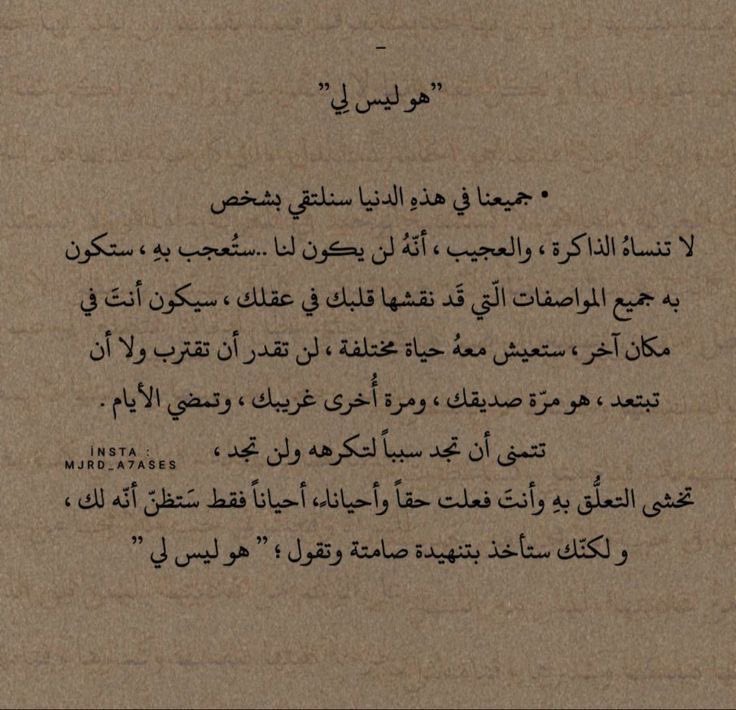 –
”هو ليس لِي”
• جميعنا في هذهِ الدنيا سنلتقي بشخص
لا تنساهُ الذاكرة ، والعجيب ، أنّهُ لن يكون لنا ..ستُعجب بهِ ، ستكون
به جميع المواصفات الّتي قَد نقشها قلبك في عقلك ، سيكون أنتَ في
مكان آخر ، ستعيش معهُ حياة مختلفة ، لن تقدر أن تقترب ولا أن
تبتعد ، هو مرّة صديقك ، ومرة أُخرى غريبك ، وتمضي الأيام .
تتمنى أن تجد سبباً لتكرهه ولن تجد ،
İNSTA :
MJRD_A7ASES
تخشى التعلُّق بهِ وأنتَ فعلت حقاً وأحياناً، أحياناً فقط سَتظنّ أنّه لك ،
و لكنّك ستأخذ بتنهيدة صامتة وتقول ؛ ” هو ليس لي ”